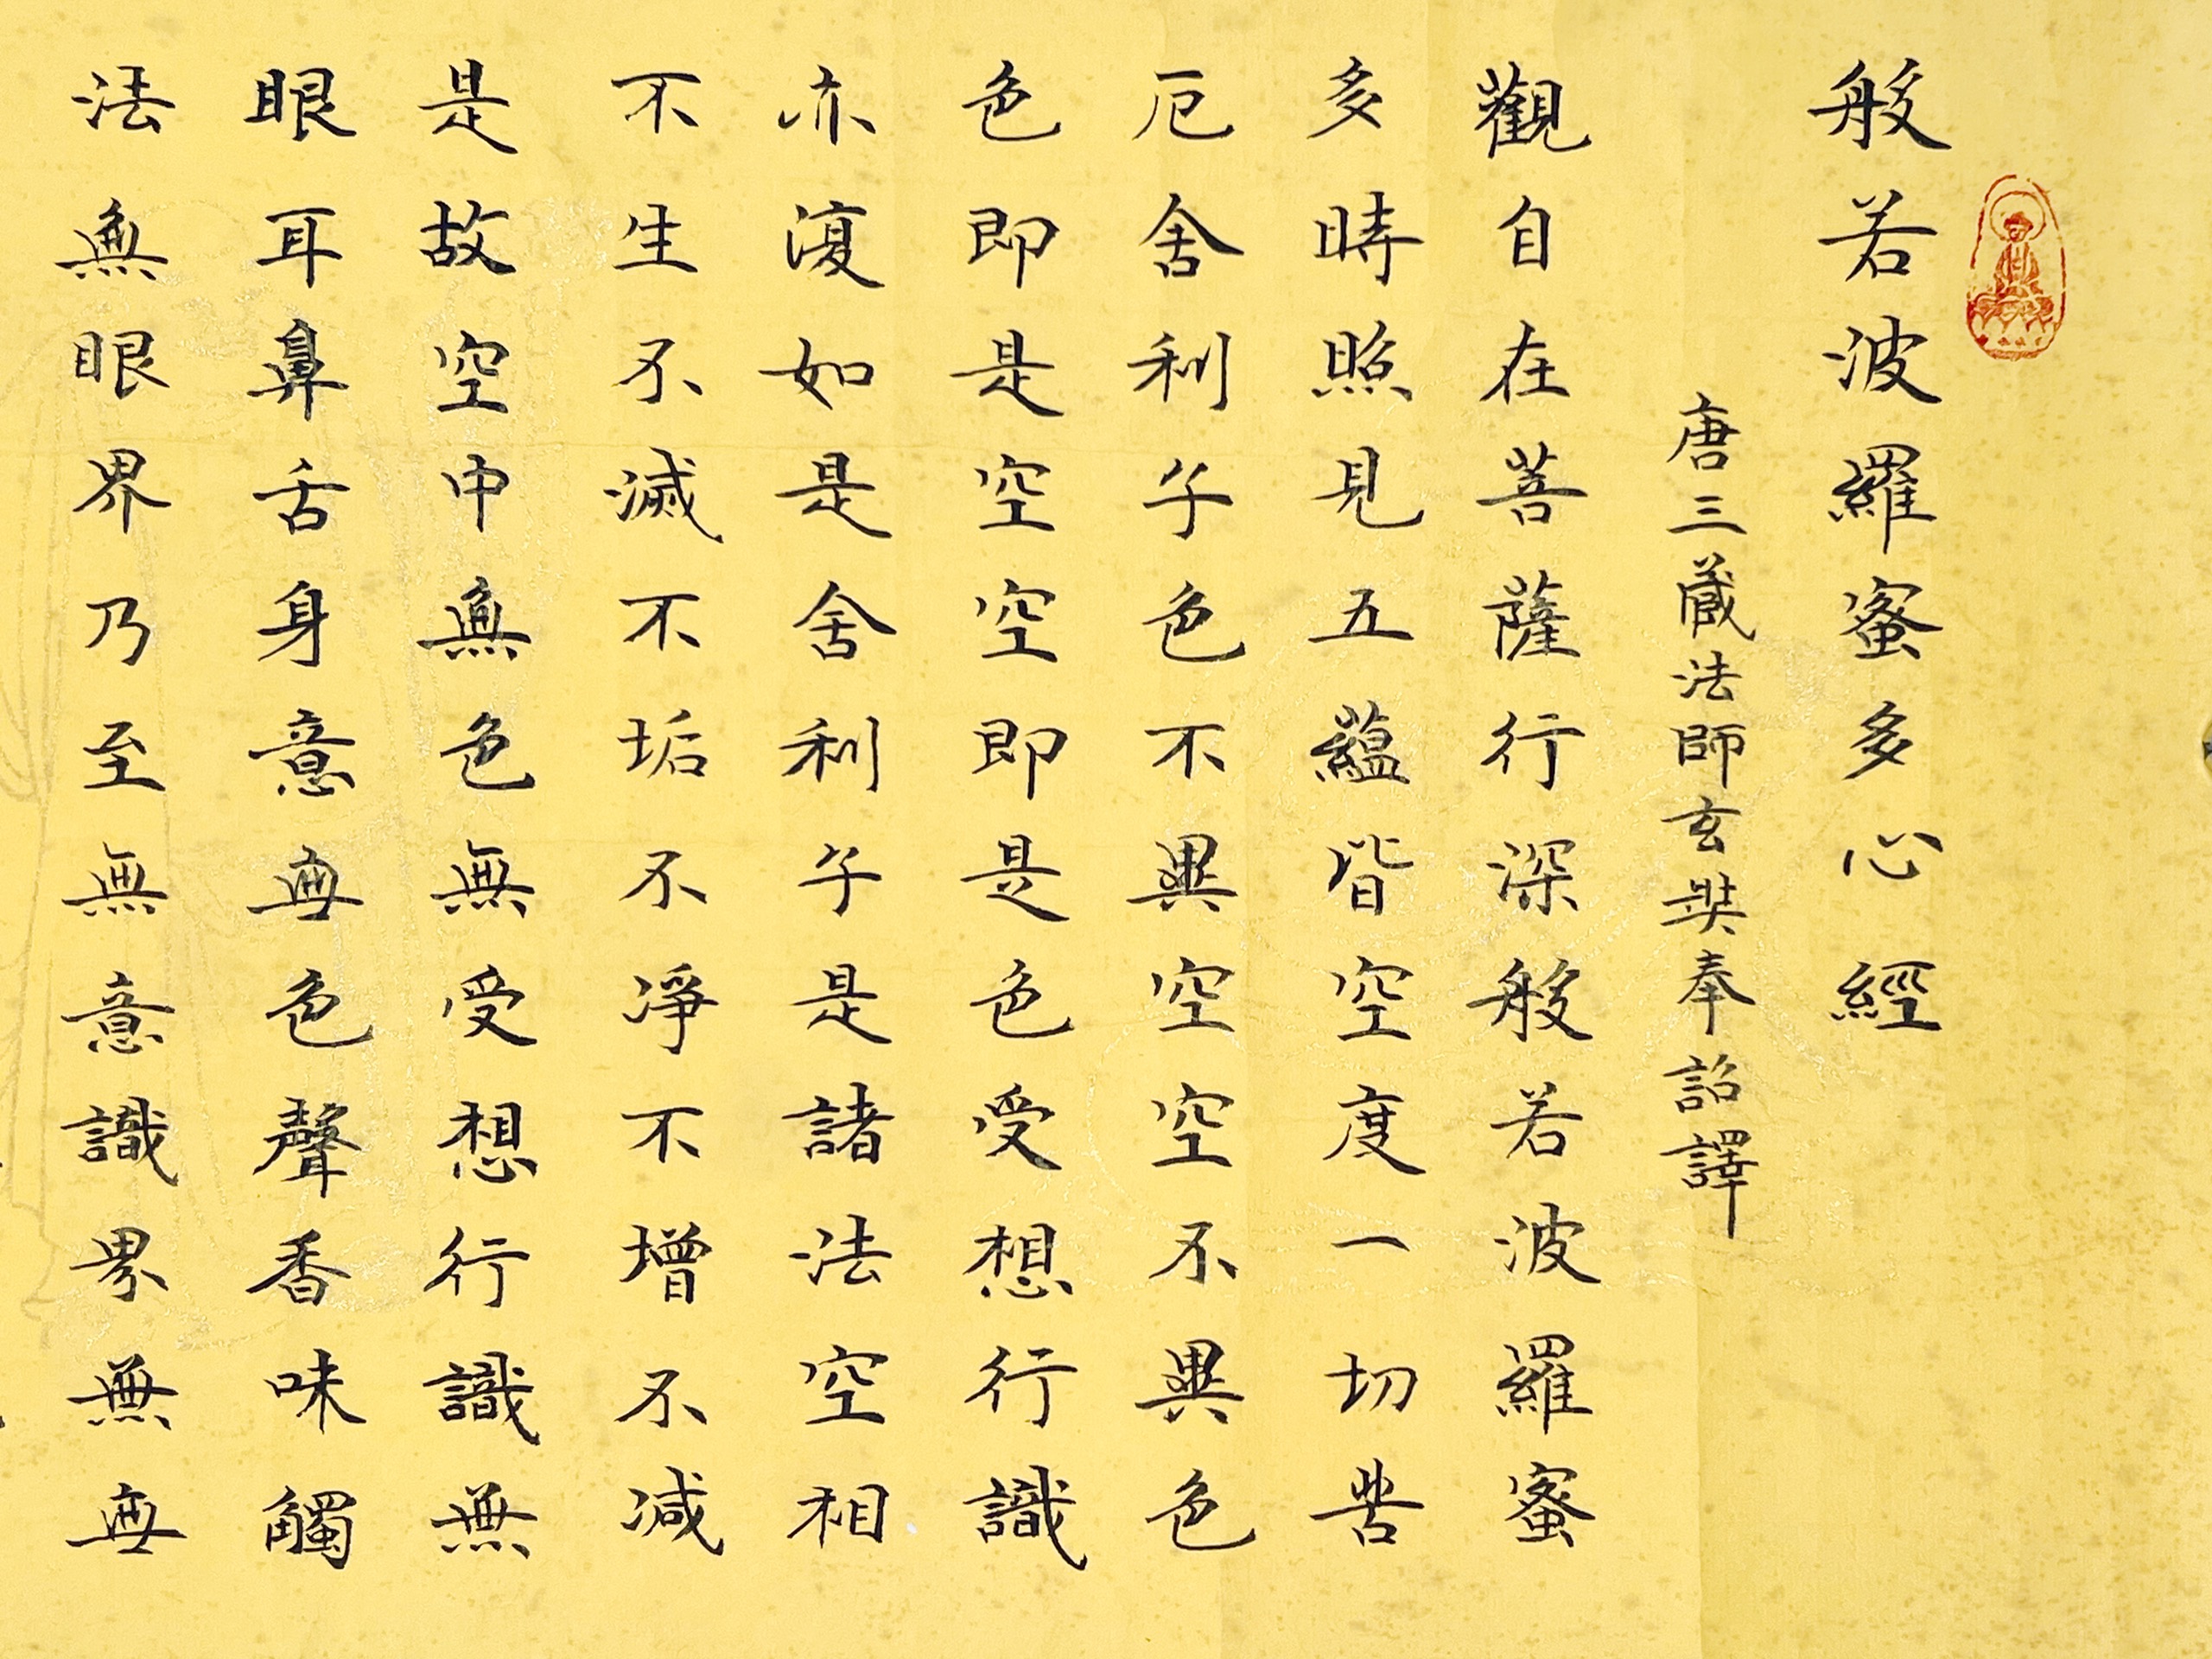 般若波羅蜜多心經
唐三藏法師玄奘奉詔譯
觀自在菩薩行深般若波羅蜜
多時照見五蘊皆空度一切苦
厄舍利子色不異空空不異色
色即是空空即是色受想行識
亦復如是舍利子是諸法空相
不生不滅不垢不淨不增不減
是故空中無色無受想行識無
眼耳鼻舌身意無色聲香味觸
法無眼界乃至無意識界無無